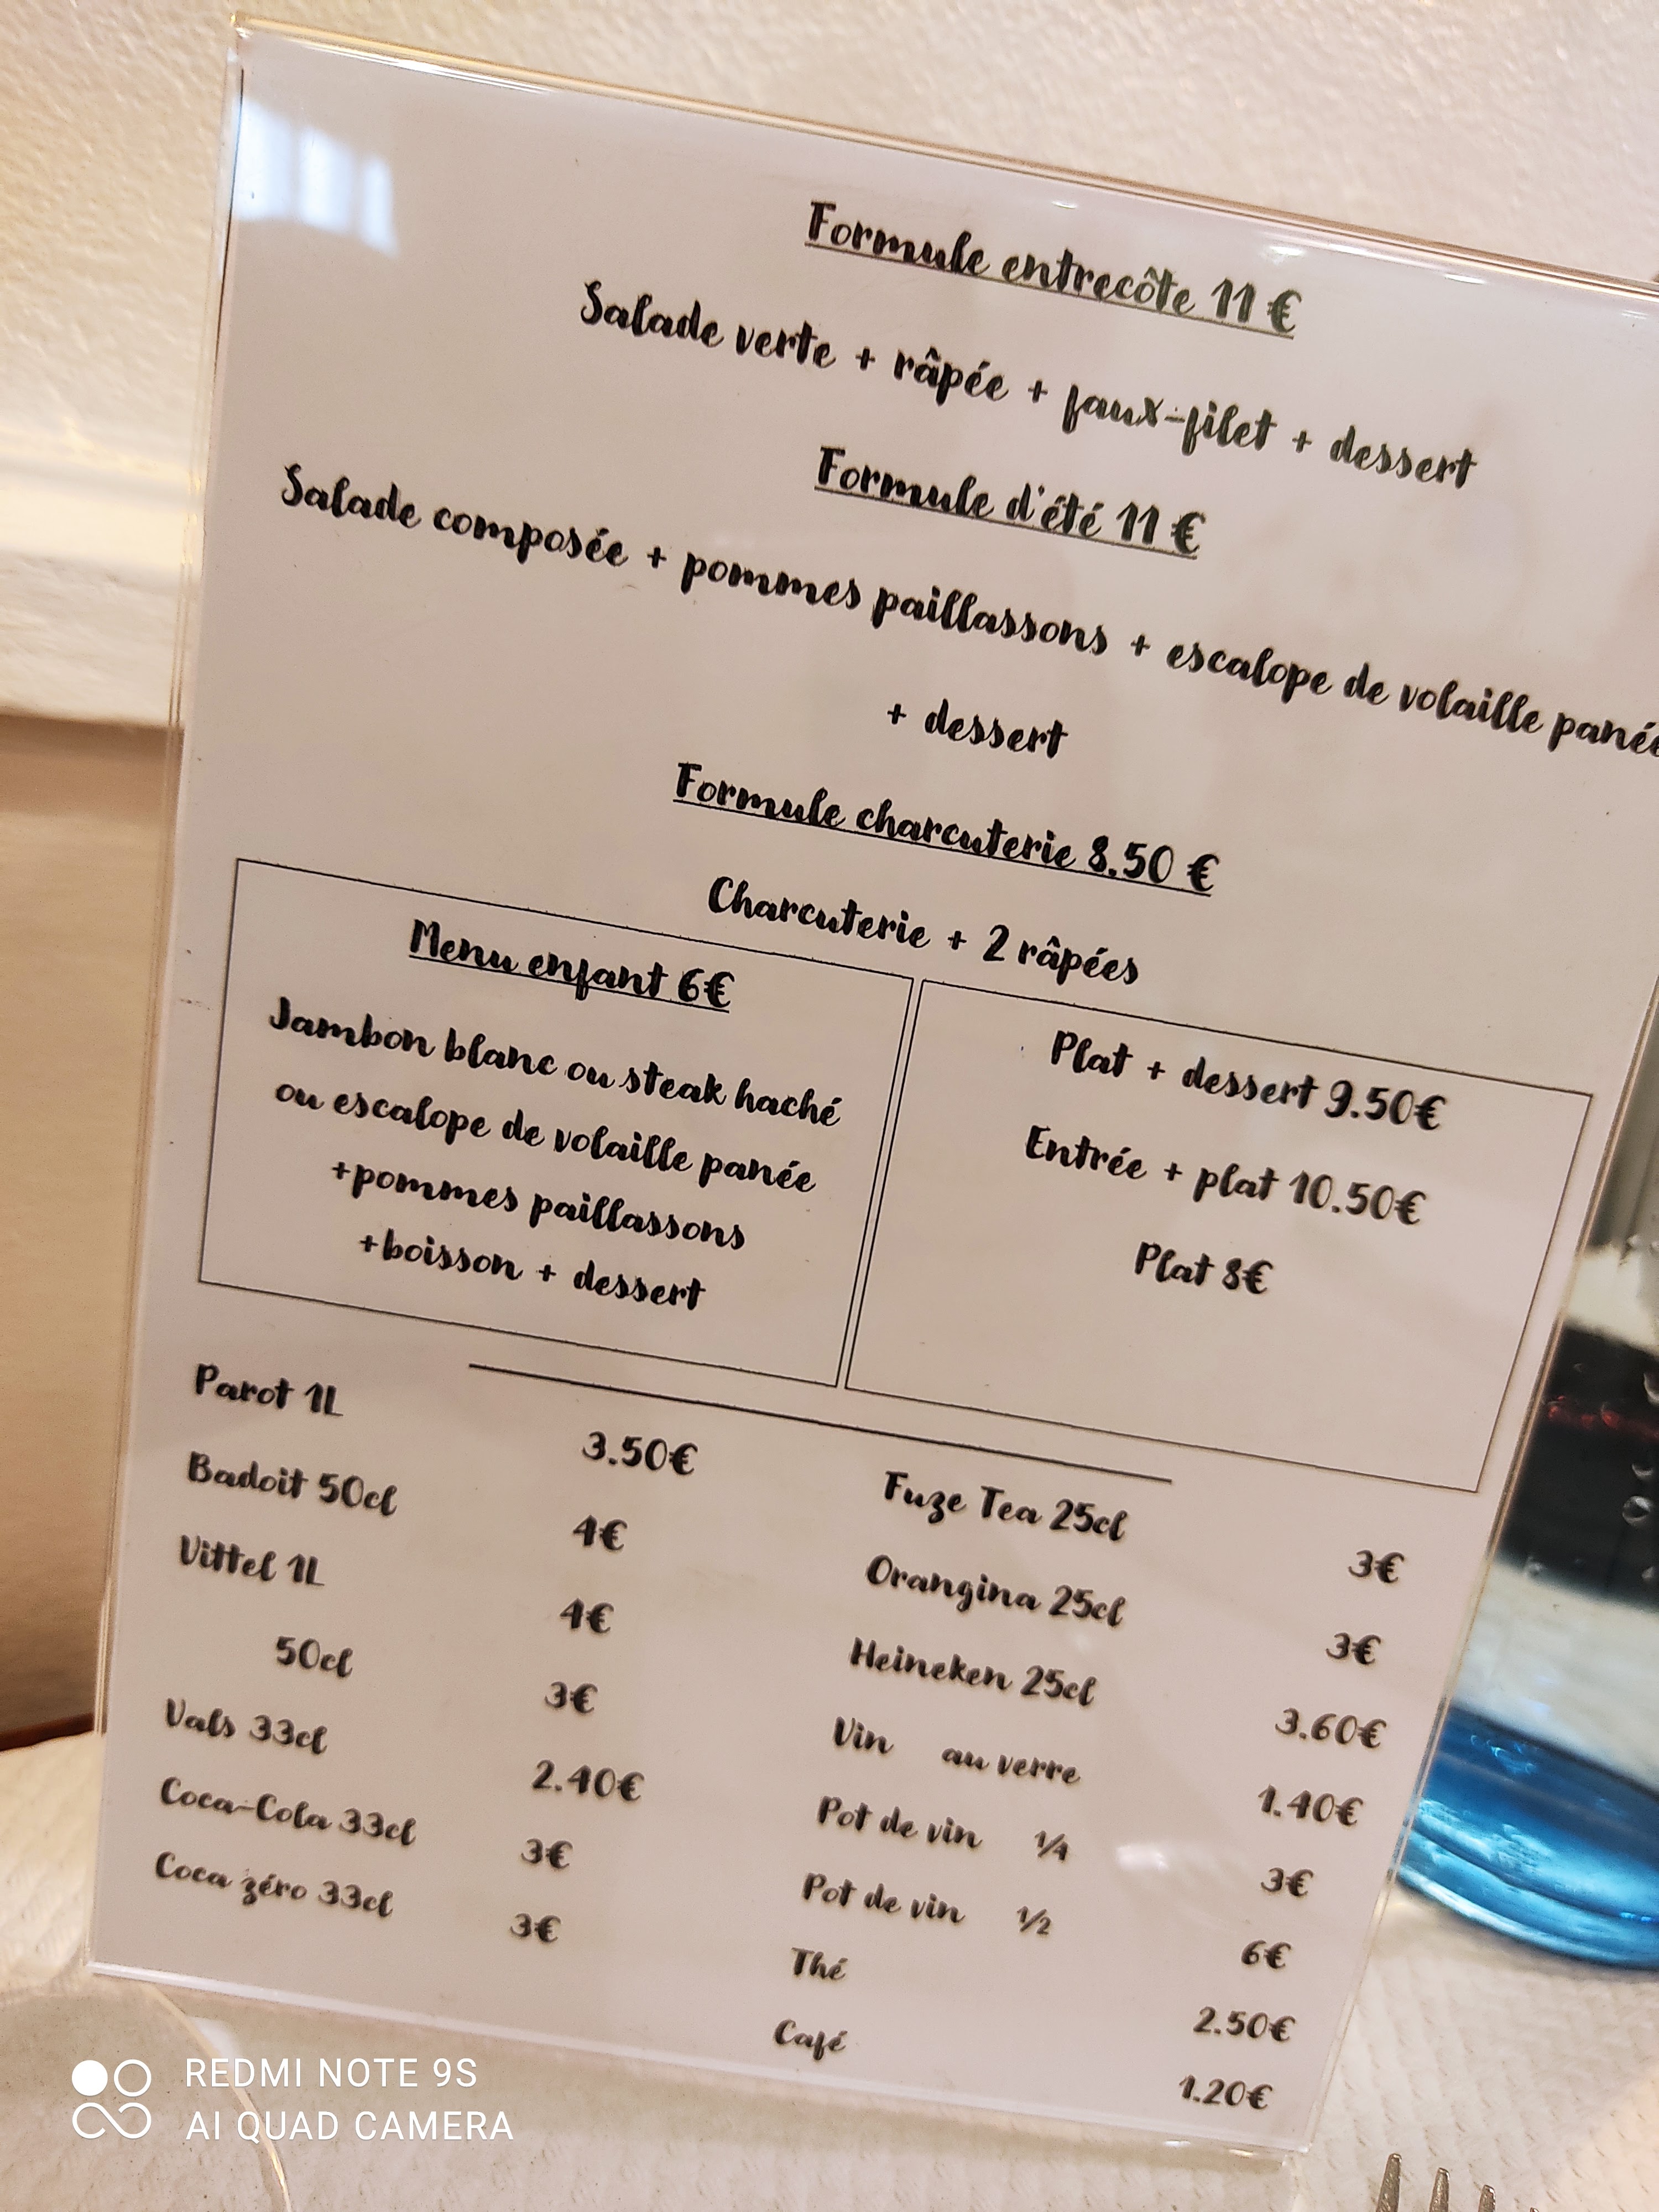 Formule entrecôte 11 €
Salade verte + râpée + faux-filet + dessert
Formule d'été 11 €
Salade composée + pommes paillassons + escalope de volaille panée
+ dessert
Formule charcuterie 8.50 €
Charcuterie + 2 râpées
Menu enfant 6€
Jambon blanc ou steak haché
ou escalope de volaille panée
+pommes paillassons
+boisson + dessert
Plat + dessert 9.50€
Entrée + plat 10.50€
Plat 8€
Parot 1L 3.50€
Badoit 50cl 4€
Vittel 1L 4€
50cl 3€
Vals 33cl 2.40€
Coca-Cola 33cl 3€
Coca zéro 33cl 3€
Fuze Tea 25cl 3€
Orangina 25cl 3€
Heineken 25cl 3.60€
Vin au verre 1.40€
Pot de vin 1/4 3€
Pot de vin 1/2 6€
Thé 2.50€
Café 1.20€
REDMI NOTE 9S
AI QUAD CAMERA